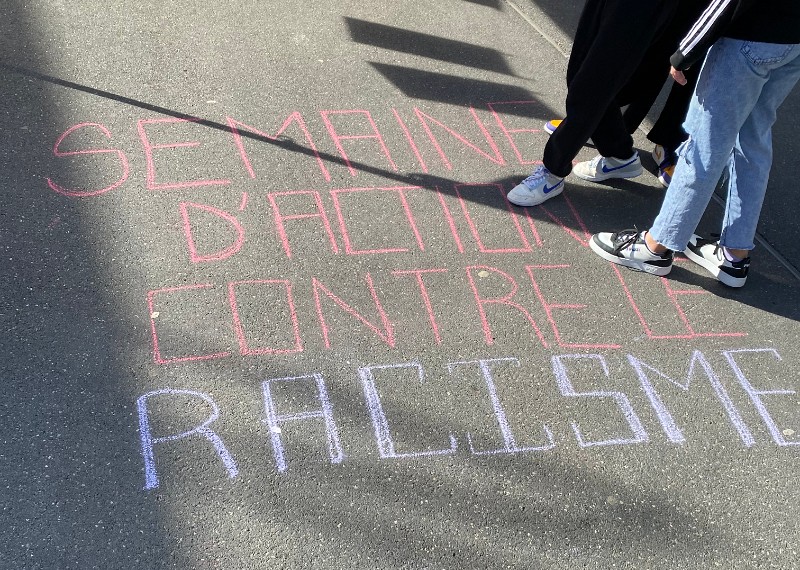 SEMAINE
D'ACTION
CONTRE LE
RACISME